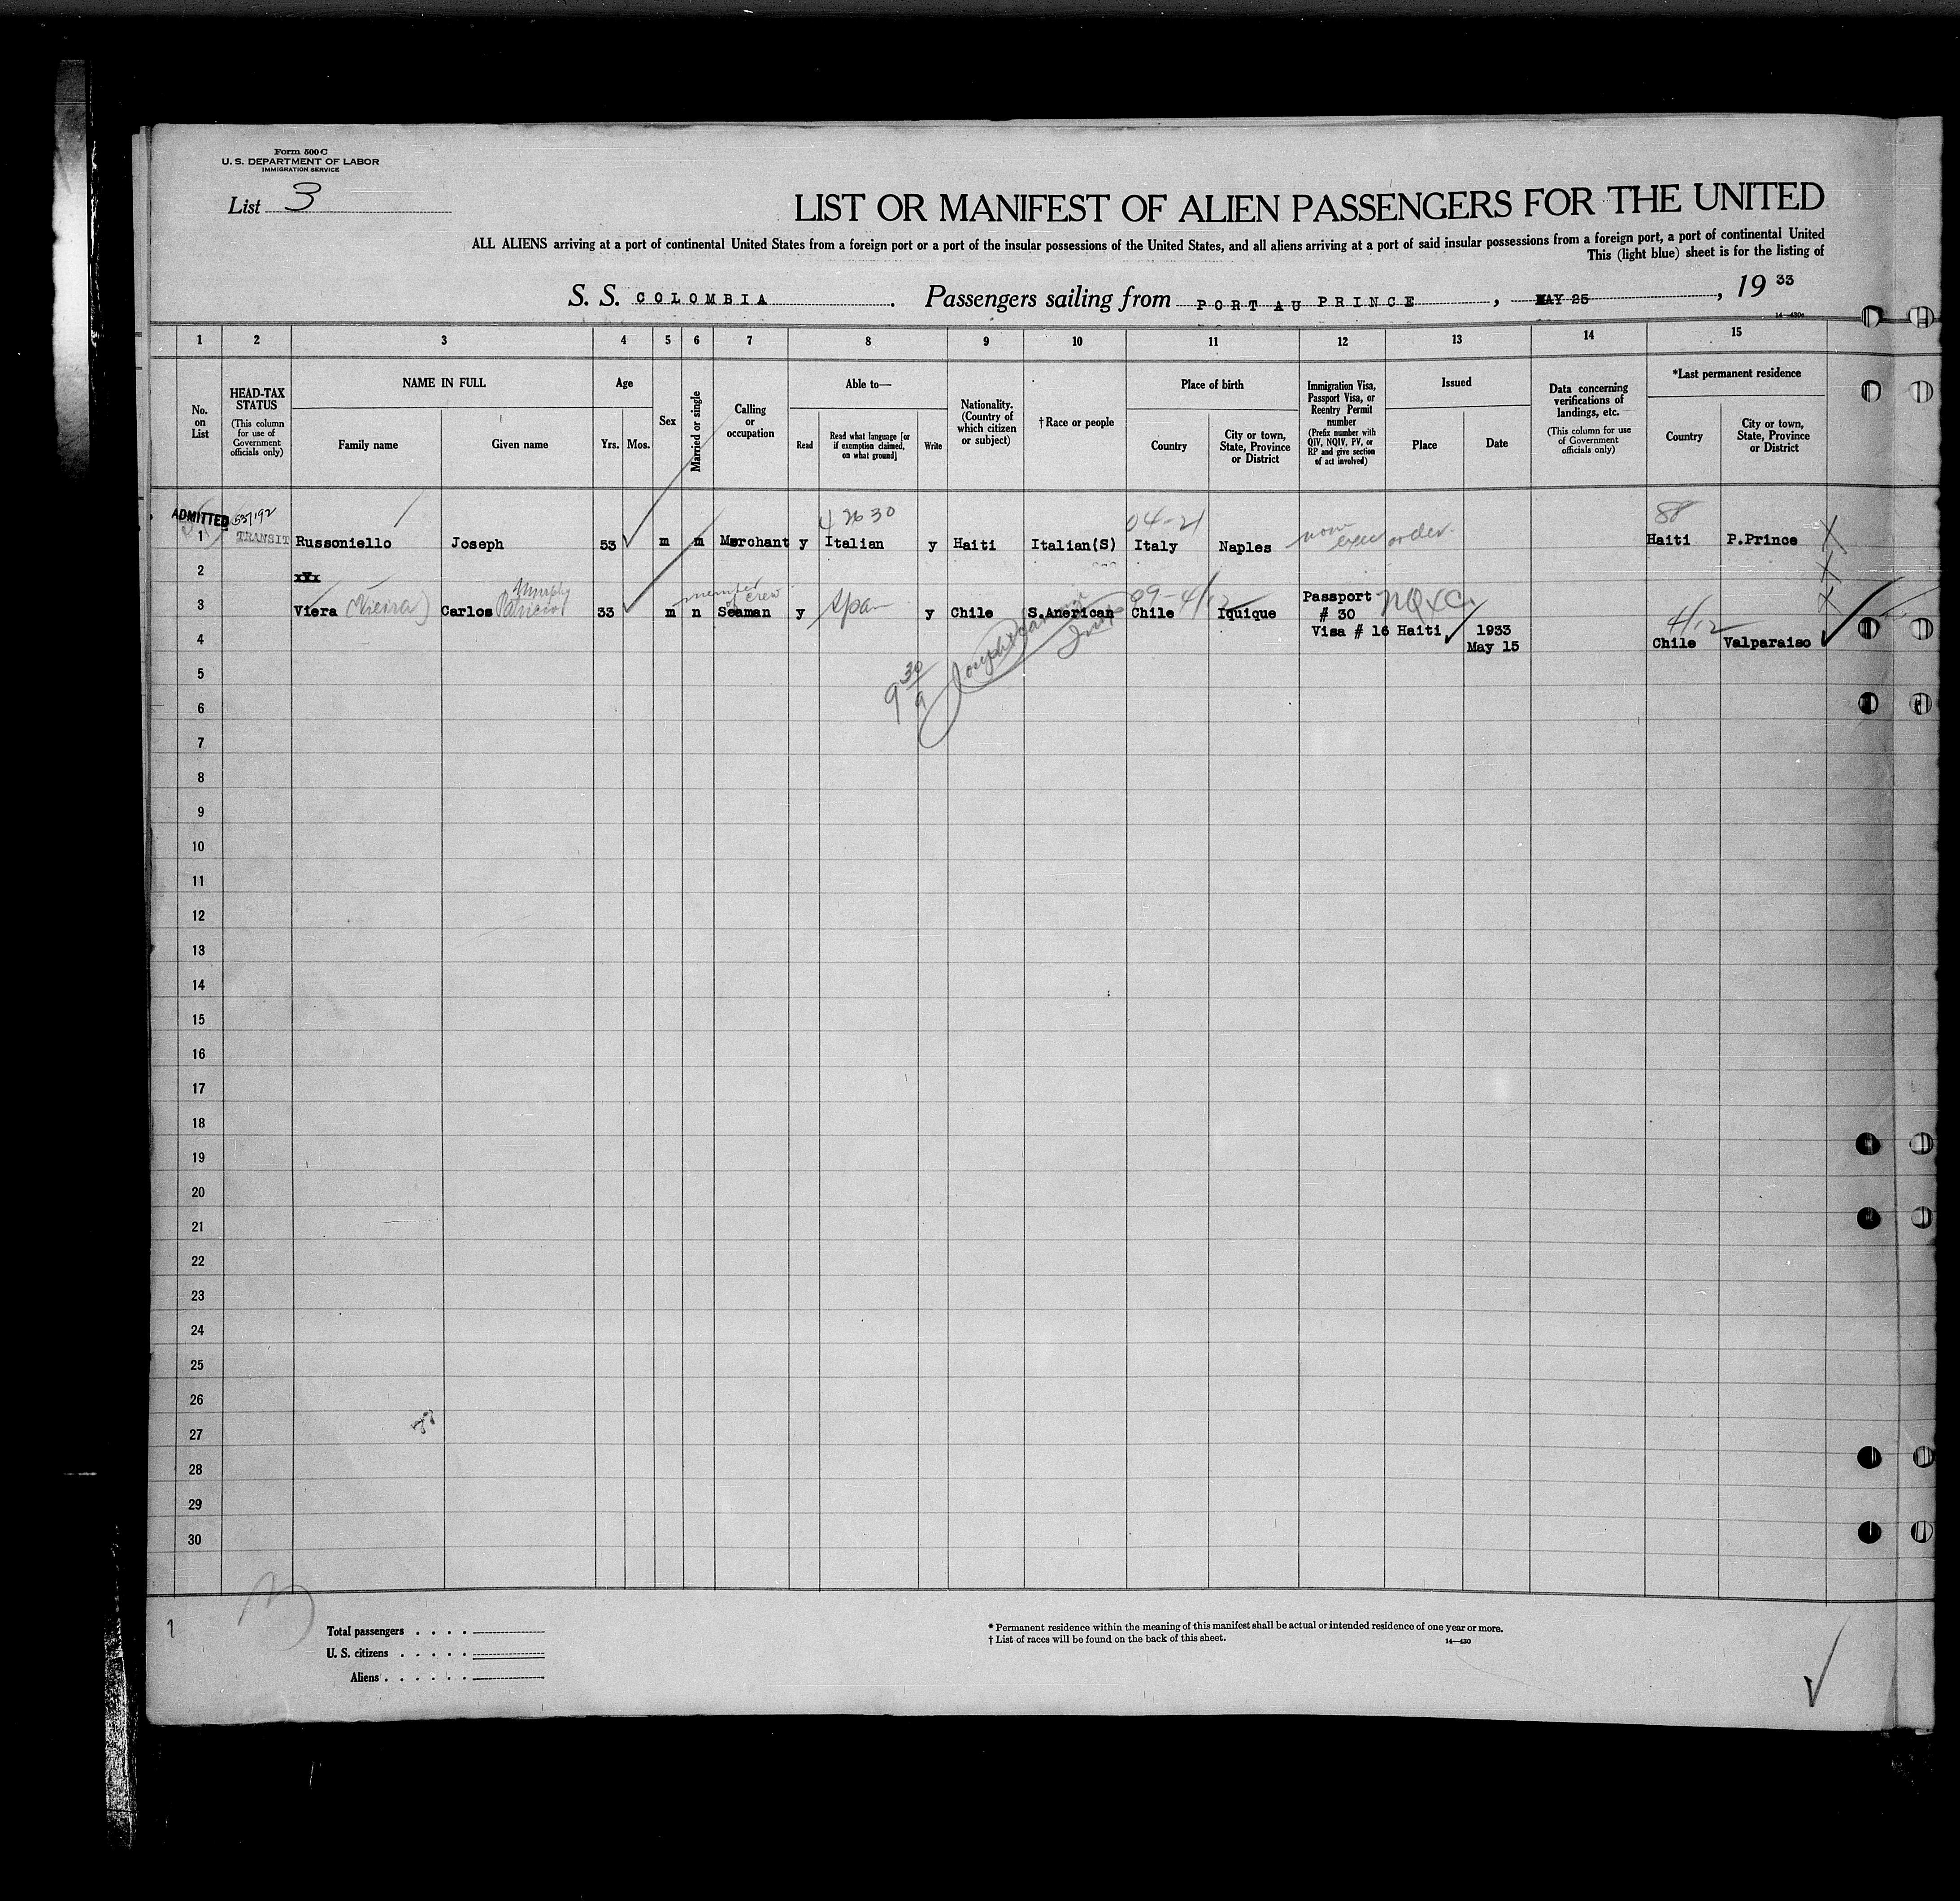 Form 500 C
U. S. DEPARTMENT OF LABOR
IMMIGRATION SERVICE
List 3
LIST OR MANIFEST OF ALIEN PASSENGERS FOR THE UNITED
ALL ALIENS arriving at a port of continental United States from a foreign port or a port of the insular possessions of the United States, and all aliens arriving at a port of said insular possessions from a foreign port, a port of continental United
This (light blue) sheet is for the listing of
S. S. COLOMBIA. Passengers sailing from PORT AU PRINCE, MAY 25, 19 33
14—430c
1 2 3 4 5 6 7 8 9 10 11 12 13 14 15
No. on List
HEAD-TAX STATUS (This column for use of Government officials only)
NAME IN FULL
Family name Given name
Age
Yrs. Mos.
Sex
Married or single
Calling or occupation
Able to—
Read
Read what language [or if exemption claimed, on what ground]
Write
Nationality. (Country of which citizen or subject)
†Race or people
Place of birth
Country
City or town, State, Province or District
Immigration Visa, Passport Visa, or Reentry Permit number (Prefix number with QIV, NQIV, PV, or RP and give section of act involved)
Issued
Place Date
Data concerning verifications of landings, etc. (This column for use of Government officials only)
*Last permanent residence
Country
City or town, State, Province or District
ADMITTED 04-21 88
1 TRANSIT Russoniello Joseph 53 m m Merchant y Italian y Haiti Italian(S) Italy Naples order Haiti P.Prince
2 xVx
member of crew Murphy
3 Viera (Vieira) Carlos Patricio 33 m n Seaman y Span y Chile S.American Chile Iquique Passport # 30
4 Visa # 16 Haiti 1933 May 15 Chile Valparaiso
4/12
9 30/a
5
6
7
8
9
10
11
12
13
14
15
16
17
18
19
20
21
22
23
24
25
26
27
28
29
30
1
Total passengers . . . .
U. S. citizens . . . . .
Aliens . . . . . .
* Permanent residence within the meaning of this manifest shall be actual or intended residence of one year or more.
† List of races will be found on the back of this sheet.
14—430